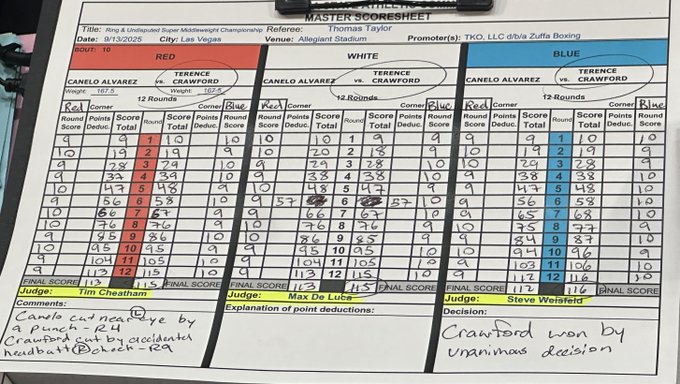 MASTER SCORESHEET
Title: Ring & Undisputed Super Middleweight Championship Referee: Thomas Taylor
Date: 9/13/2025 City: Las Vegas Venue: Allegiant Stadium Promoter(s): TKO, LLC d/b/a Zuffa Boxing
BOUT: 10
RED WHITE BLUE
CANELO ALVAREZ vs. TERENCE CRAWFORD CANELO ALVAREZ vs. TERENCE CRAWFORD CANELO ALVAREZ vs. TERENCE CRAWFORD
Weight: 167.5 Weight: 167.5
12 Rounds 12 Rounds 12 Rounds
Red Corner Corner Blue Red Corner Corner Blue Red Corner Corner Blue
Round Score Points Deduc. Score Total Round Score Total Points Deduc. Round Score Round Score Points Deduc. Score Total Round Score Total Points Deduc. Round Score Round Score Points Deduc. Score Total Round Score Total Points Deduc. Round Score
9 9 1 10 10 10 10 1 9 9 9 9 1 10 10
10 19 2 19 9 10 20 2 18 9 10 19 2 19 9
9 28 3 29 10 9 29 3 28 10 10 29 3 28 9
9 37 4 39 10 9 38 4 38 10 9 38 4 38 10
10 47 5 48 9 10 48 5 47 9 9 47 5 48 10
9 56 6 58 10 9 57 6 57 10 9 56 6 58 10
10 66 7 67 9 9 66 7 67 10 9 65 7 68 10
10 76 8 76 9 10 76 8 76 9 10 75 8 77 9
9 85 9 86 10 10 86 9 85 9 9 84 9 87 10
10 95 10 95 9 9 95 10 95 10 10 94 10 96 9
9 104 11 105 10 9 104 11 105 10 9 103 11 106 10
9 113 12 115 10 9 113 12 115 10 9 112 12 116 10
FINAL SCORE 113 115 FINAL SCORE FINAL SCORE 113 115 FINAL SCORE FINAL SCORE 112 116 FINAL SCORE
Judge: Tim Cheatham Judge: Max De Luca Judge: Steve Weisfeld
Comments: Explanation of point deductions: Decision:
Canelo cut near (L) eye by
a punch - R4
Crawford cut by accidental
headbutt (R) cheek - R9
Crawford won by
unanimous decision